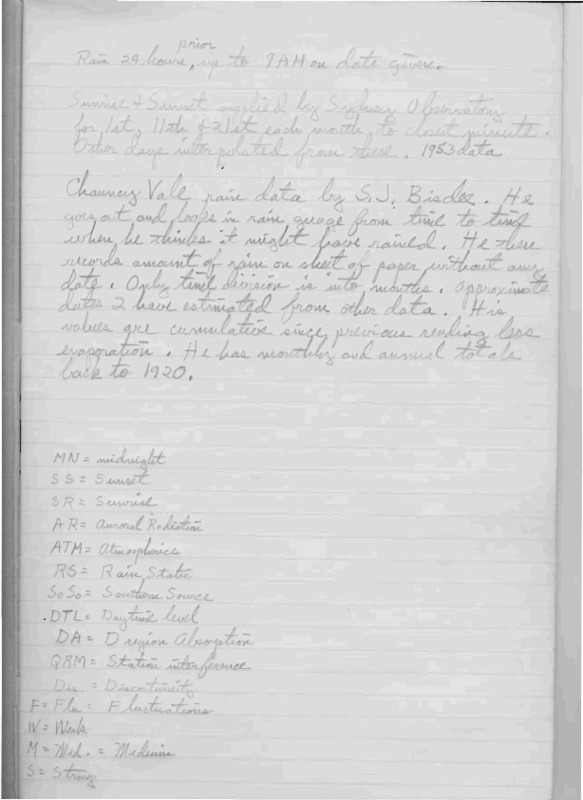 prior
Rain 24 hours, up to 9AM on date given.
Sunrise & Sunset supplied by Sydney Observatory
for 1st, 11th & 21st each month, to closest minute.
Other days interpolated from these. 1953 data
Chauncy Vale rain data by S.J. Bisdee. He
goes out and looks in rain guage from time to time
when he thinks it might have rained. He then
records amount of rain on sheet of paper without any
date. Only time division is into months. Approximate
dates I have estimated from other data. His
values are cumulative since previous reading less
evaporation. He has monthly and annual totals
back to 1920.
MN = midnight
SS = Sunset
SR = Sunrise
AR = Auroral Radiation
ATM = Atmospherics
RS = Rain Static
SoSo = Southern Source
DTL = Daytime level
DA = D region Absorption
QRM = Station interference
Dis. = Discontinuity
F = Flu = Fluctuations
W = Weak
M = Med. = Medium
S = Strong